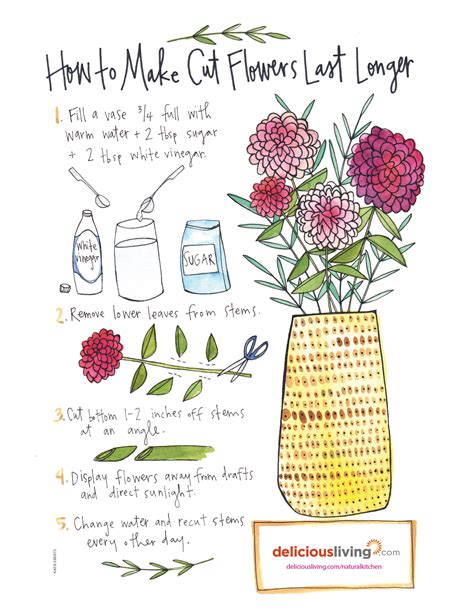 How to Make Cut Flowers Last Longer
1. Fill a vase 3/4 full with
warm water + 2 tbsp sugar
+ 2 tbsp white vinegar.
White
vinegar
SUGAR
2. Remove lower leaves from stems.
3. Cut bottom 1-2 inches off stems
at an angle.
4. Display flowers away from drafts
and direct sunlight.
5. Change water and recut stems
every other day.
deliciousliving.com
deliciousliving.com/naturalkitchen